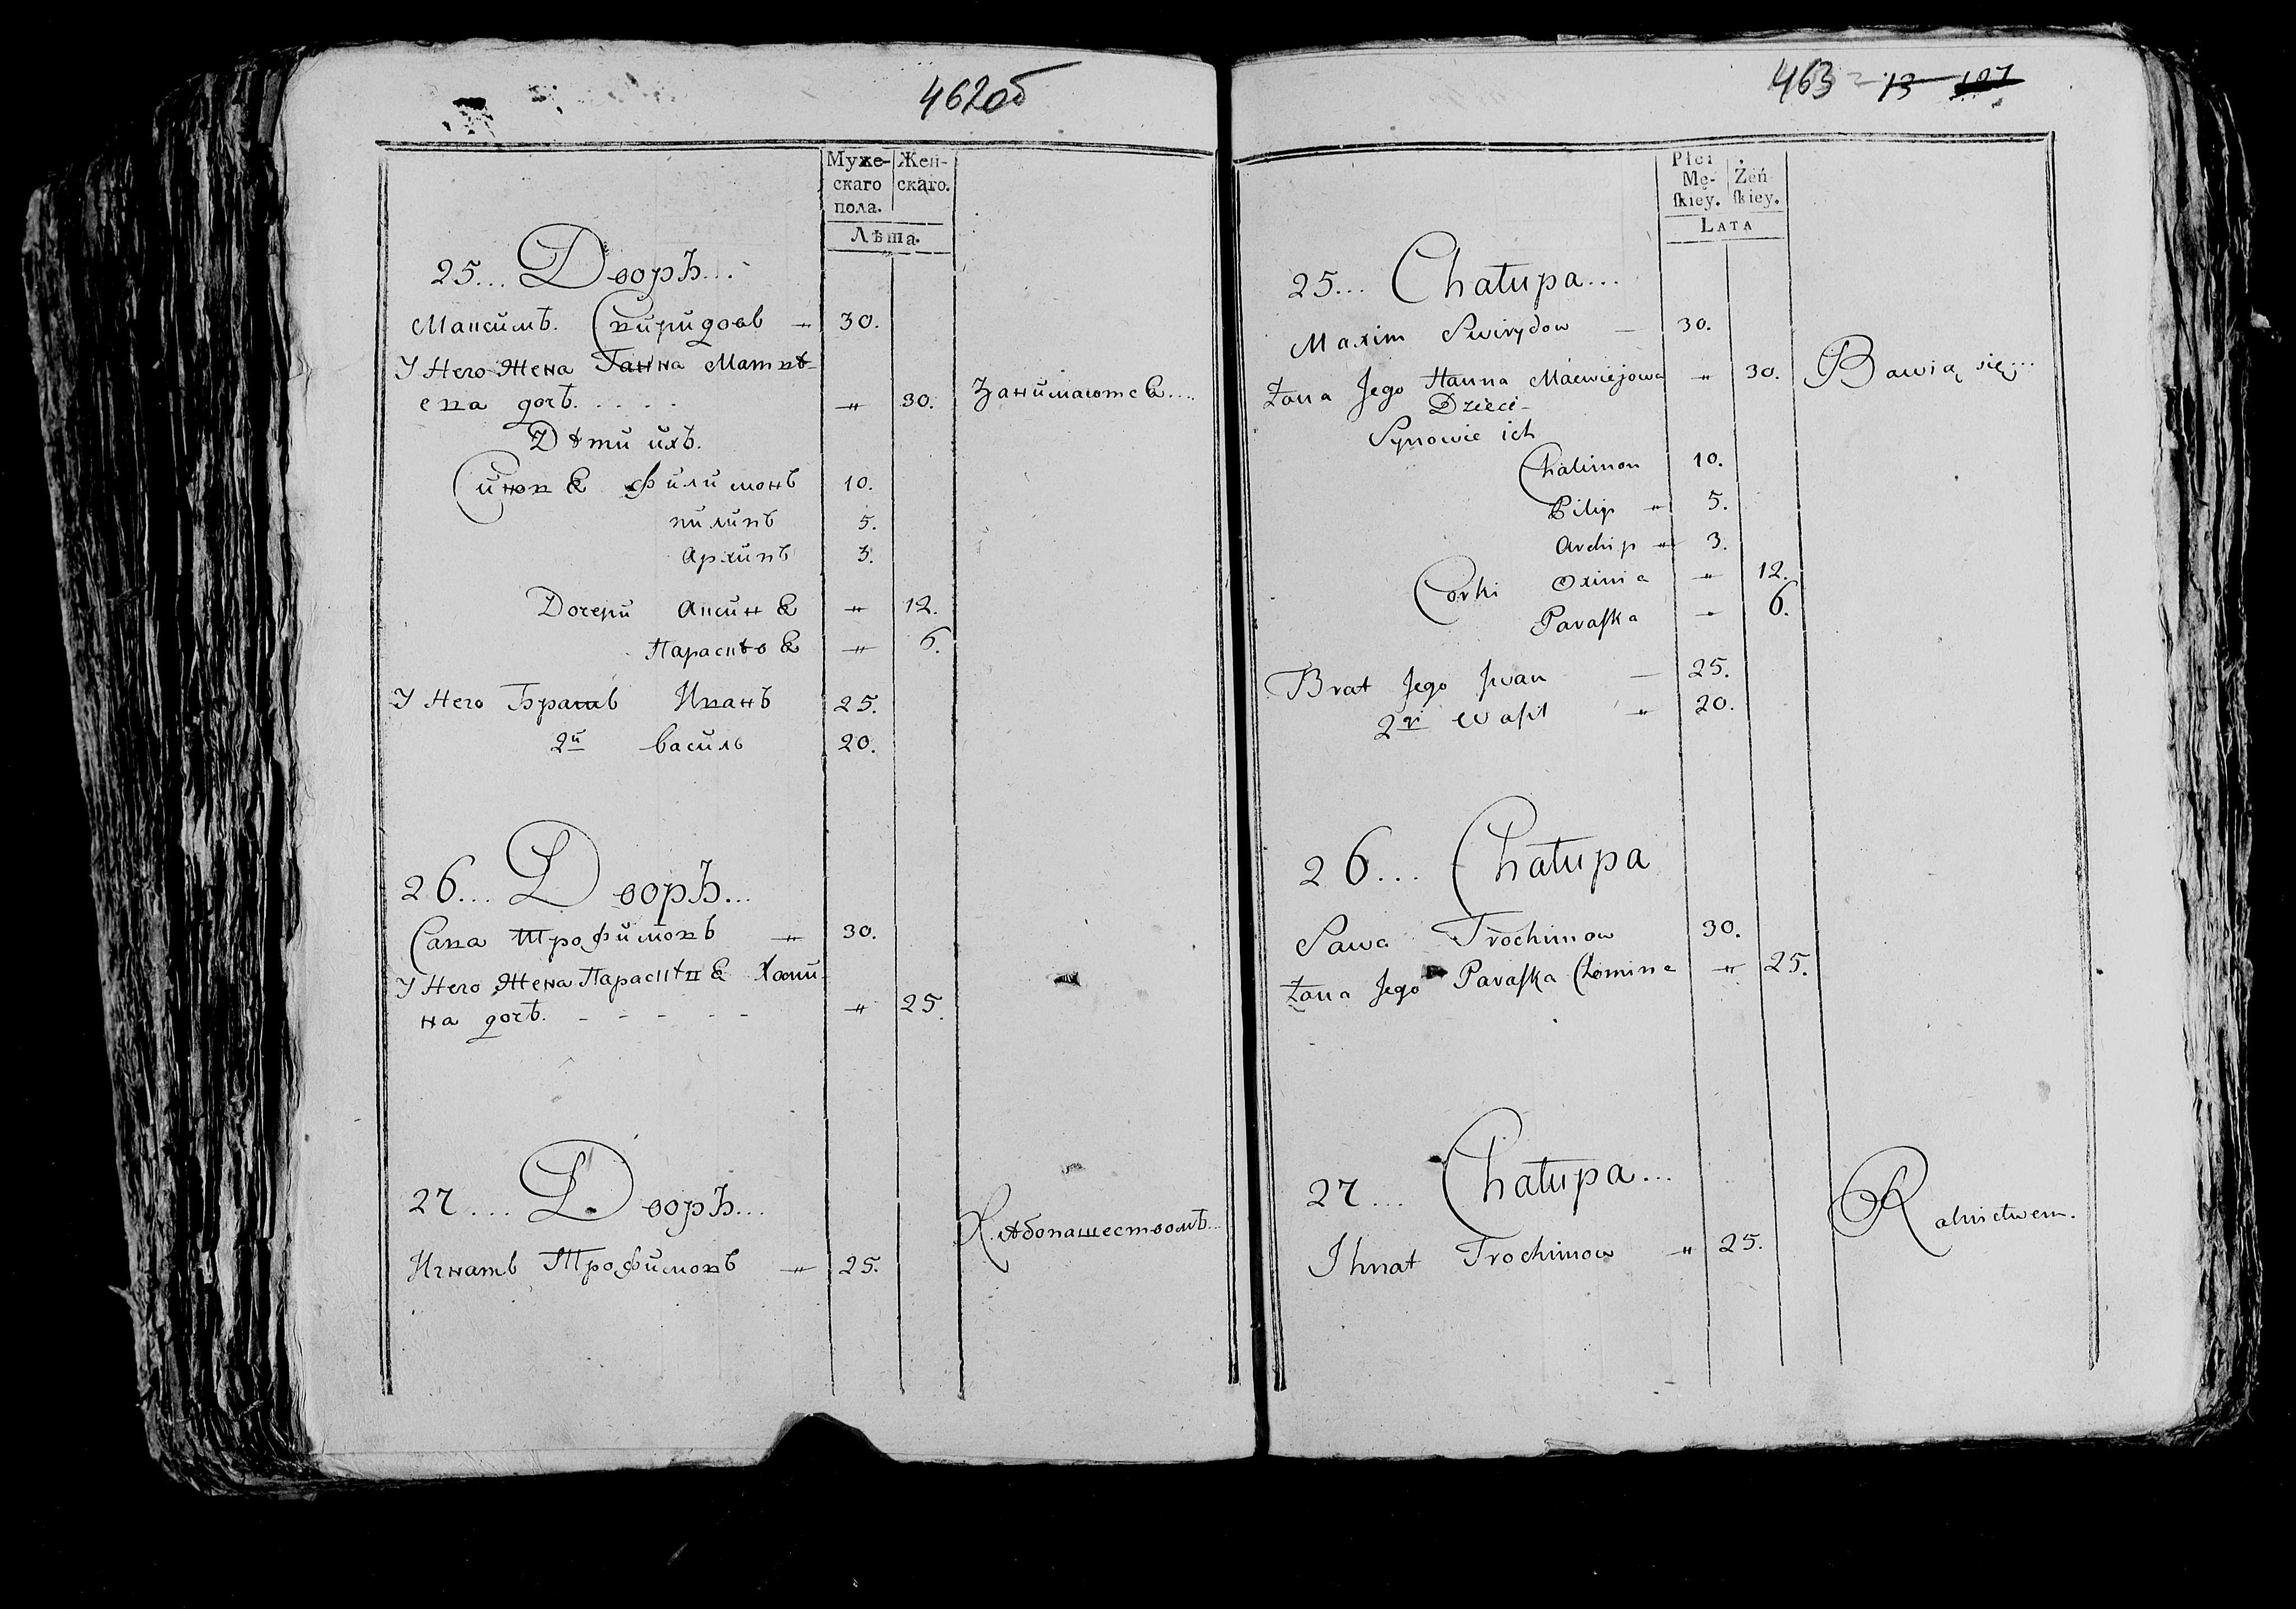 462об
Муже- Жен-
скаго скаго.
пола.
Лѣта.
25... Дворъ...
Максимъ. Спиридовъ " 30.
У Него Жена Ганна Матвѣ-
ева дочь. . . . . " 30. Занимаются....
Дѣти ихъ.
Синовя Филимонъ 10.
пилипъ 5.
Архипъ 3.
Дочери Аксиня " 12.
Парасковя " 6.
У Него Братъ Иванъ 25.
2й василь 20.
26... Дворъ...
Сава Трофимовъ " 30.
У Него Жена Парасковя Хоми-
на дочь. - - - - - " 25.
27... Дворъ...
Хлѣбопашествомъ...
Игнатъ Трофимовъ " 25.
463 13 107
Płci
Mę- Żeń
ſkiey. ſkiey.
LATA
25... Chałupa...
Maxim Swirydow — 30.
Żona Jego Hanna Maćwiejowa " 30. Bawią się...
Dzieci-
Synowie ich
Chalimon 10.
Pilip " 5.
Archip " 3.
Corki Oxinia " 12.
Paraſka " 6.
Brat Jego Jwan — 25.
2gi Waſil " 20.
26... Chałupa
Sawa Trochimow 30.
Żona Jego Paraſka Chomina " 25.
27... Chałupa...
Rolnictwem.
Ihnat Trochimow " 25.